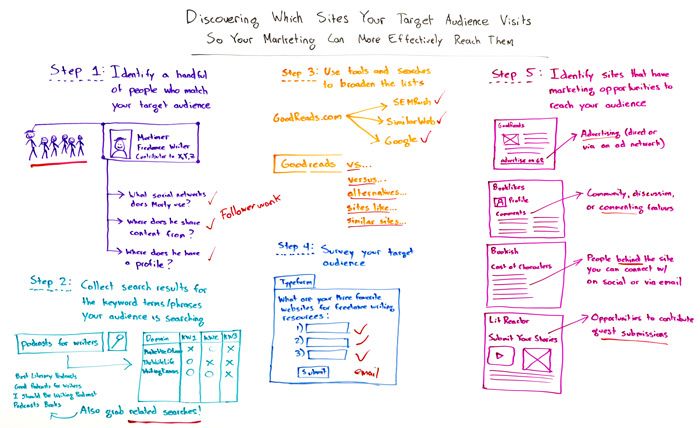 Discovering Which Sites Your Target Audience Visits
So Your Marketing Can More Effectively Reach Them
Step 1: Identify a handful
of people who match
your target audience
Mortimer
Freelance Writer
Contributor to X,Y,Z
What social networks
does Morty use?
Where does he share
content from?
Where does he have
a profile?
Followerwonk
Step 2: Collect search results for
the keyword terms/phrases
your audience is searching
podcasts for writers
Best Literary Podcasts
Good Podcasts for Writers
I Should Be Writing Podcast
Podcasts Books
Also grab related searches!
Domain KW1 KW2 KW3
X O X
TheWriteLife O X X
WritingExcuses O O X
Step 3: Use tools and searches
to broaden the lists
GoodReads.com
SEMRush
SimilarWeb
Google
Goodreads vs...
versus...
alternatives...
sites like...
similar sites...
Step 4: Survey your target
audience
Typeform
What are your three favorite
websites for freelance writing
resources:
1)
2)
3)
Submit
email
Step 5: Identify sites that have
marketing opportunities to
reach your audience
GoodReads
Advertise on GR
Advertising (direct or
via an ad network)
Booklikes
Profile
Comments
Community, discussion,
or commenting features
Bookish
Cast of Characters
People behind the site
you can connect w/
on social or via email
Lit Reactor
Submit Your Stories
Opportunities to contribute
guest submissions